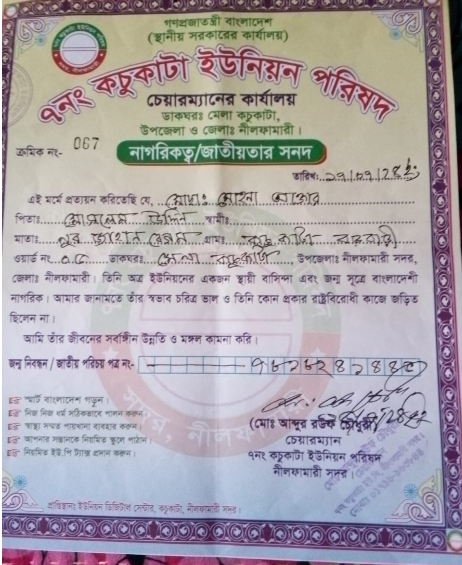 গণপ্রজাতন্ত্রী বাংলাদেশ
(স্থানীয় সরকারের কার্যালয়)
৭নং কচুকাটা ইউনিয়ন পরিষদ
চেয়ারম্যানের কার্যালয়
ডাকঘরঃ মেলা কচুকাটা,
উপজেলা ও জেলাঃ নীলফামারী।
ক্রমিক নং- 067
নাগরিকত্ব/জাতীয়তার সনদ
তারিখঃ
এই মর্মে প্রত্যয়ন করিতেছি যে, মোছাঃ মোহনা আক্তার
পিতাঃ মোসলেম উদ্দিন স্বামীঃ
মাতাঃ নুর জাহান বেগম গ্রামঃ কচুকাটা বন্দরপাড়া
ওয়ার্ড নং- ০৫ ডাকঘরঃ মেলা কচুকাটা উপজেলাঃ নীলফামারী সদর,
জেলাঃ নীলফামারী। তিনি অত্র ইউনিয়নের একজন স্থায়ী বাসিন্দা এবং জন্ম সূত্রে বাংলাদেশী
নাগরিক। আমার জানামতে তাঁর স্বভাব চরিত্র ভাল ও তিনি কোন প্রকার রাষ্ট্রবিরোধী কাজে জড়িত
ছিলেন না।
আমি তাঁর জীবনের সর্বাঙ্গীন উন্নতি ও মঙ্গল কামনা করি।
জন্ম নিবন্ধন / জাতীয় পরিচয় পত্র নং-
স্মার্ট বাংলাদেশ গড়ুন।
নিজ নিজ ধর্ম সঠিকভাবে পালন করুন।
স্বাস্থ্য সম্মত পায়খানা ব্যবহার করুন।
আপনার সন্তানকে নিয়মিত স্কুলে পাঠান।
নিয়মিত ইউ.পি ট্যাক্স প্রদান করুন।
(মোঃ আব্দুর রউফ চৌধুরী)
চেয়ারম্যান
৭নং কচুকাটা ইউনিয়ন পরিষদ
নীলফামারী সদর।
প্রাপ্তিস্থানঃ ইউনিয়ন ডিজিটাল সেন্টার, কচুকাটা, নীলফামারী সদর।